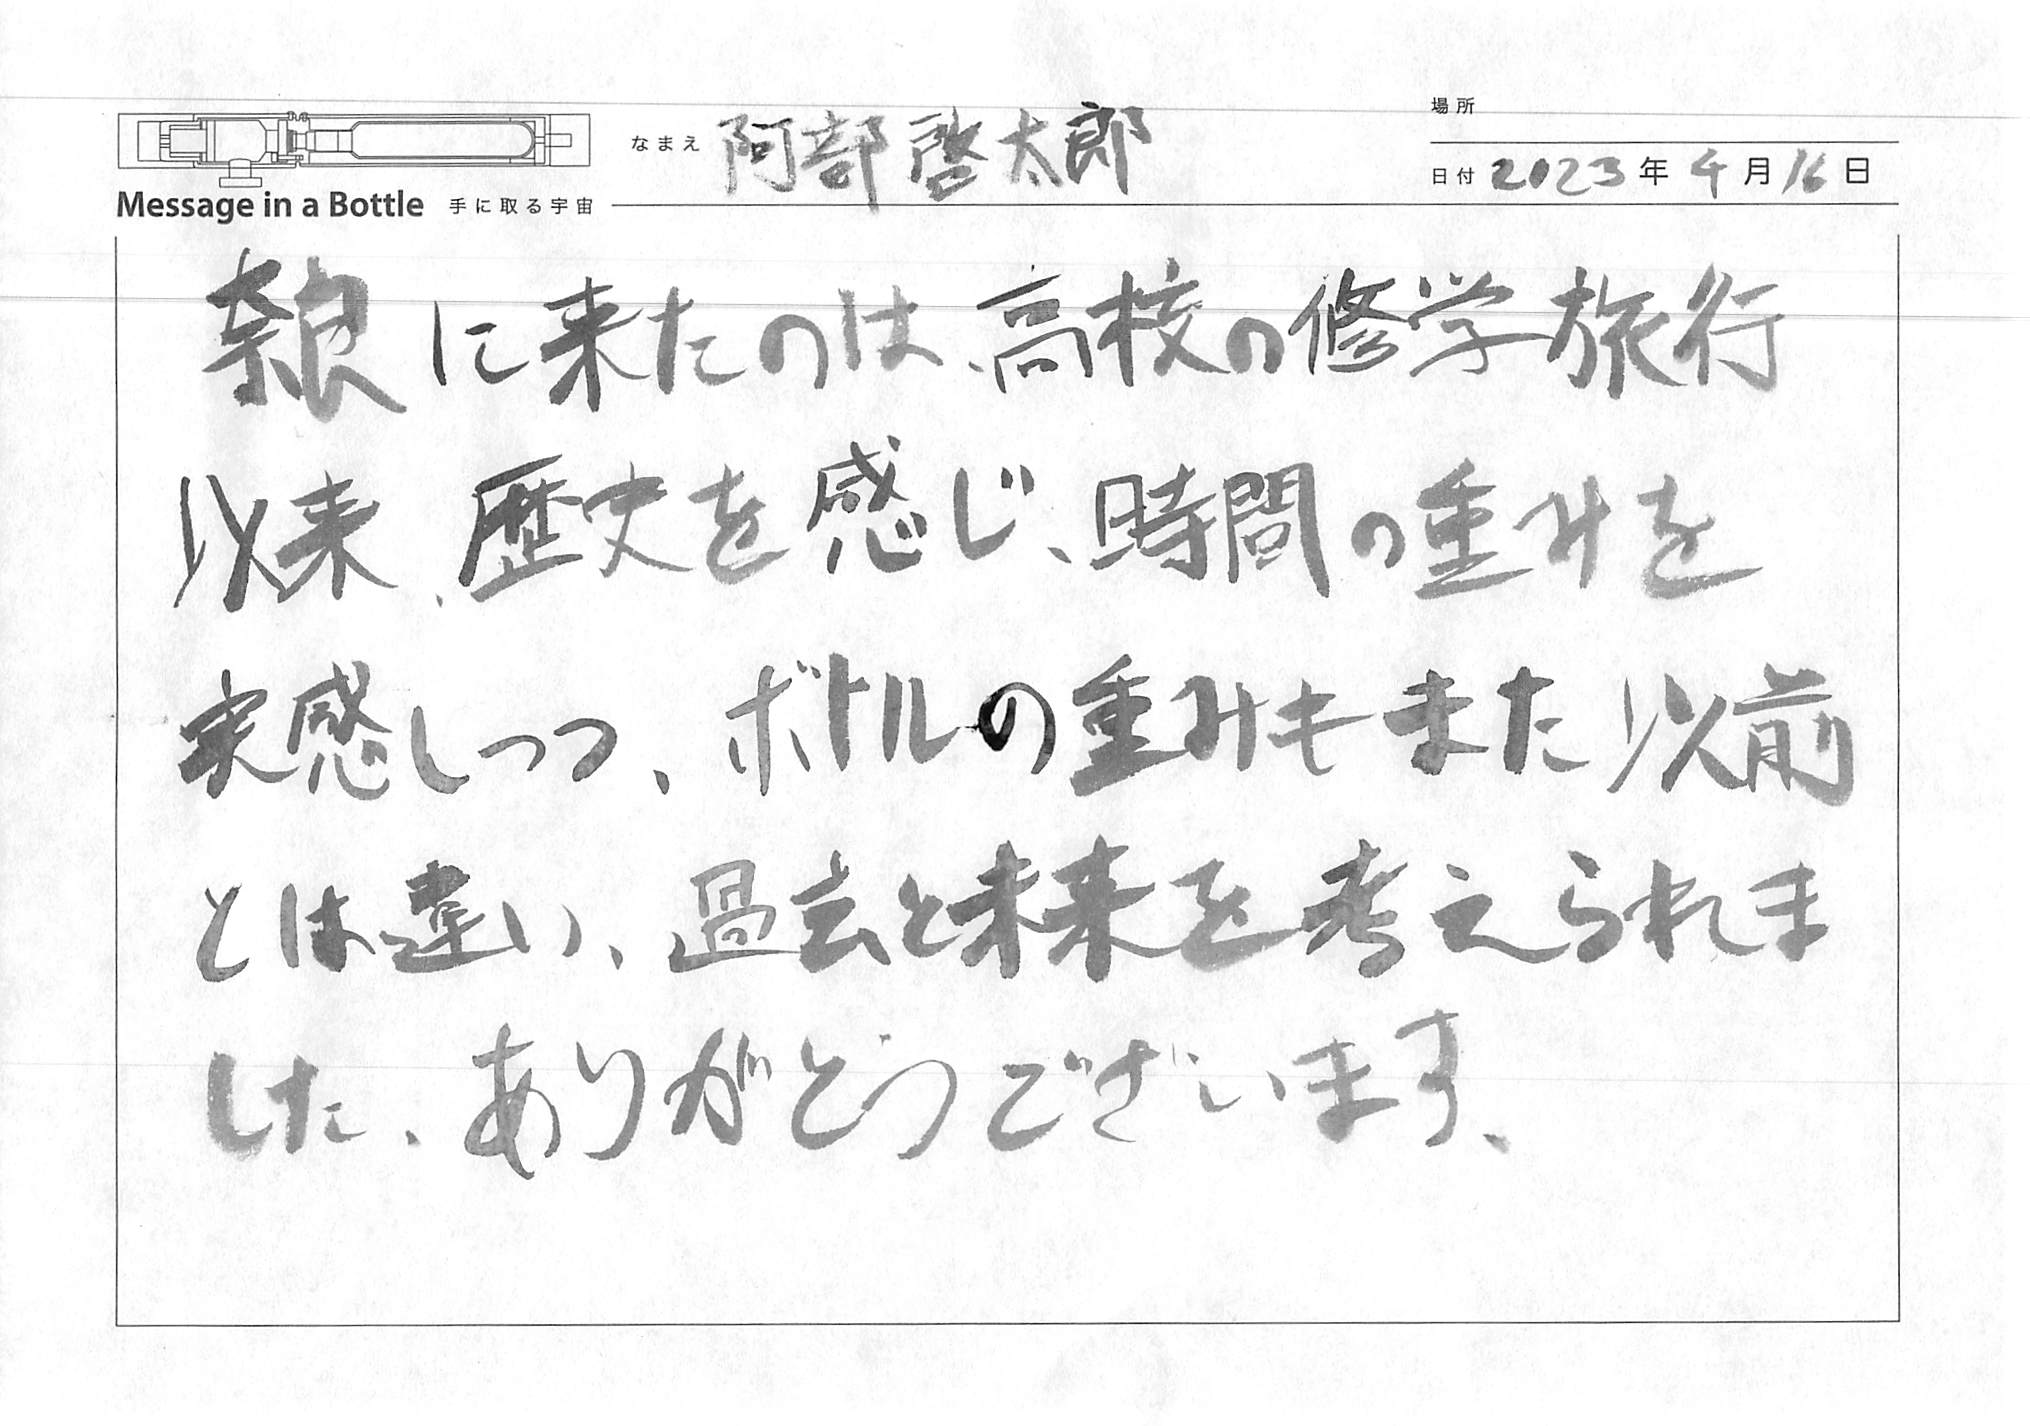 場所
なまえ 阿部啓太郎
日付 2023年4月16日
Message in a Bottle 手に取る宇宙
奈良に来たのは、高校の修学旅行
以来、歴史を感じ、時間の重みを
実感しつつ、ボトルの重みもまた以前
とは違い、過去と未来を考えられま
した、ありがとうございます、